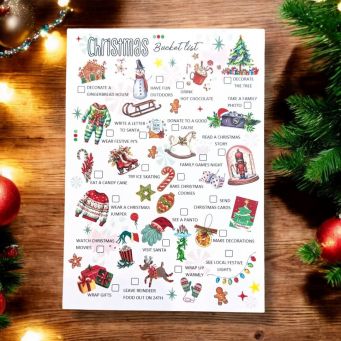 Christmas Bucket list
DECORATE A
GINGERBREAD HOUSE
HAVE FUN
OUTDOORS
DRINK
HOT CHOCOLATE
DECORATE
THE TREE
TAKE A FAMILY
PHOTO
WRITE A LETTER
TO SANTA
DONATE TO A GOOD
CAUSE
WEAR FESTIVE PJ'S
READ A CHRISTMAS
STORY
FAMILY GAMES NIGHT
EAT A CANDY CANE
TRY ICE SKATING
BAKE CHRISTMAS
COOKIES
WEAR A CHRISTMAS
JUMPER
SEND
CHRISTMAS CARDS
SEE A PANTO
WATCH CHRISTMAS
MOVIES
VISIT SANTA
MAKE DECORATIONS
SEE LOCAL FESTIVE
LIGHTS
WRAP UP
WARMLY
WRAP GIFTS
LEAVE REINDEER
FOOD OUT ON 24TH